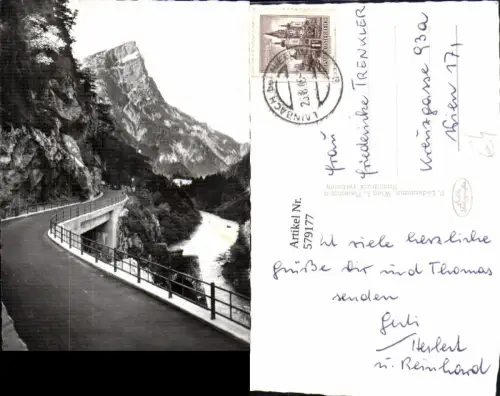 LAINBACH
Frau
Friederike TRENKLER
Kreuzgasse 93a
Wien 17
P. Ledermann, Wien I.,
Artikel Nr.
579177
viele herzliche
Grüße Dir und Thomas
senden
Herbert
u. Reinhard